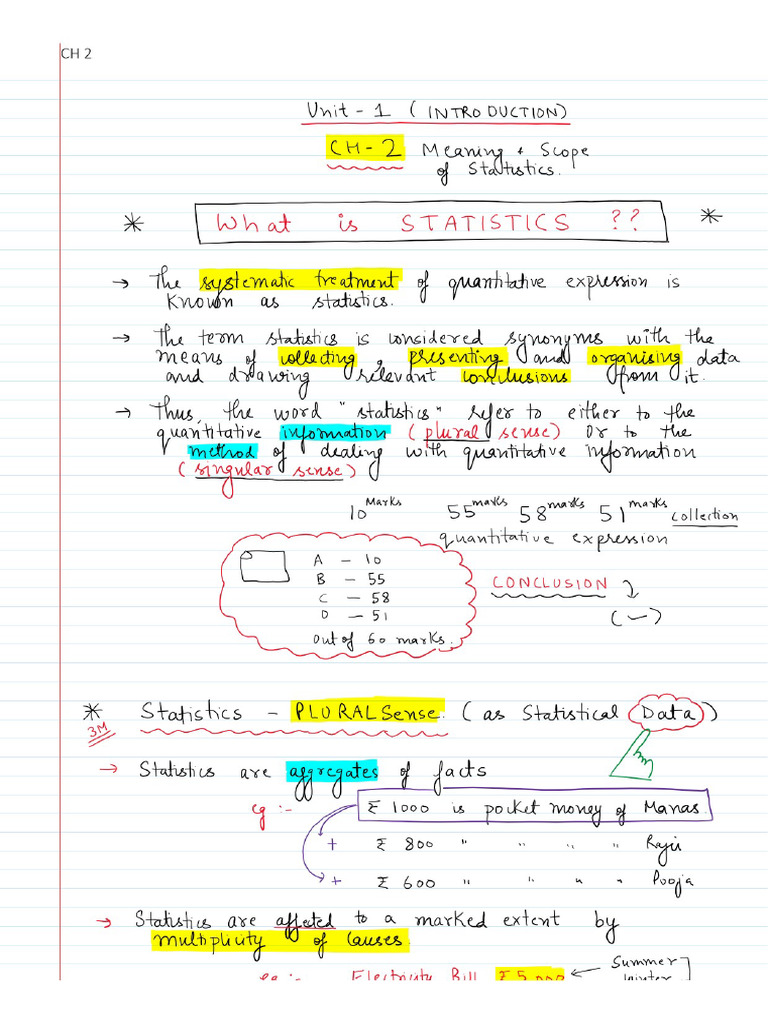 CH 2
Unit - 1 (INTRODUCTION)
CH-2 Meaning & Scope
of Statistics.
* What is STATISTICS ?? *
→ The systematic treatment of quantitative expression is
known as statistics.
→ The term statistics is considered synonyms with the
means of collecting, presenting and organising data
and drawing relevant conclusions from it.
→ Thus, the word "statistics" refer to either to the
quantitative information (plural sense) or to the
method of dealing with quantitative information
(singular sense)
10 Marks 55 marks 58 marks 51 marks collection
quantitative expression
A - 10
B - 55
C - 58
D - 51
out of 60 marks.
CONCLUSION
(—)
* Statistics - PLURAL Sense. (as Statistical Data)
3M
→ Statistics are aggregates of facts
eg :- ₹ 1000 is pocket money of Manas.
+ ₹ 800 " " " " Raju
+ ₹ 600 " " " " Pooja
→ Statistics are affected to a marked extent by
multiplicity of causes.
eg :- Electricity Bill ₹ 5,000 ← Summer
winter